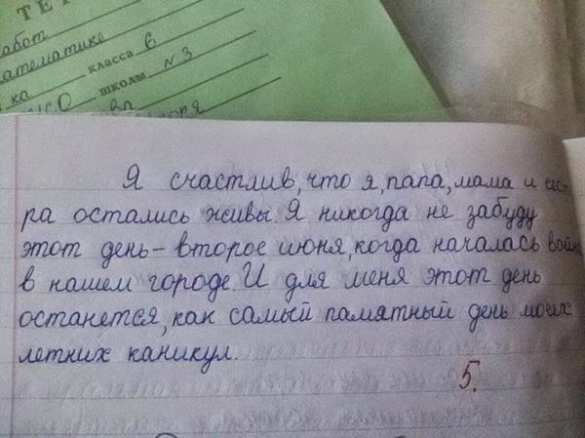 ТЕТ
работ
математике
ка класса 6
школы №3
Я счастлив, что я, папа, мама и сес-
ра остались живы. Я никогда не забуду
этот день – второе июня, когда началась война
в нашем городе. И для меня этот день
останется, как самый памятный день моих
летних каникул.
5.